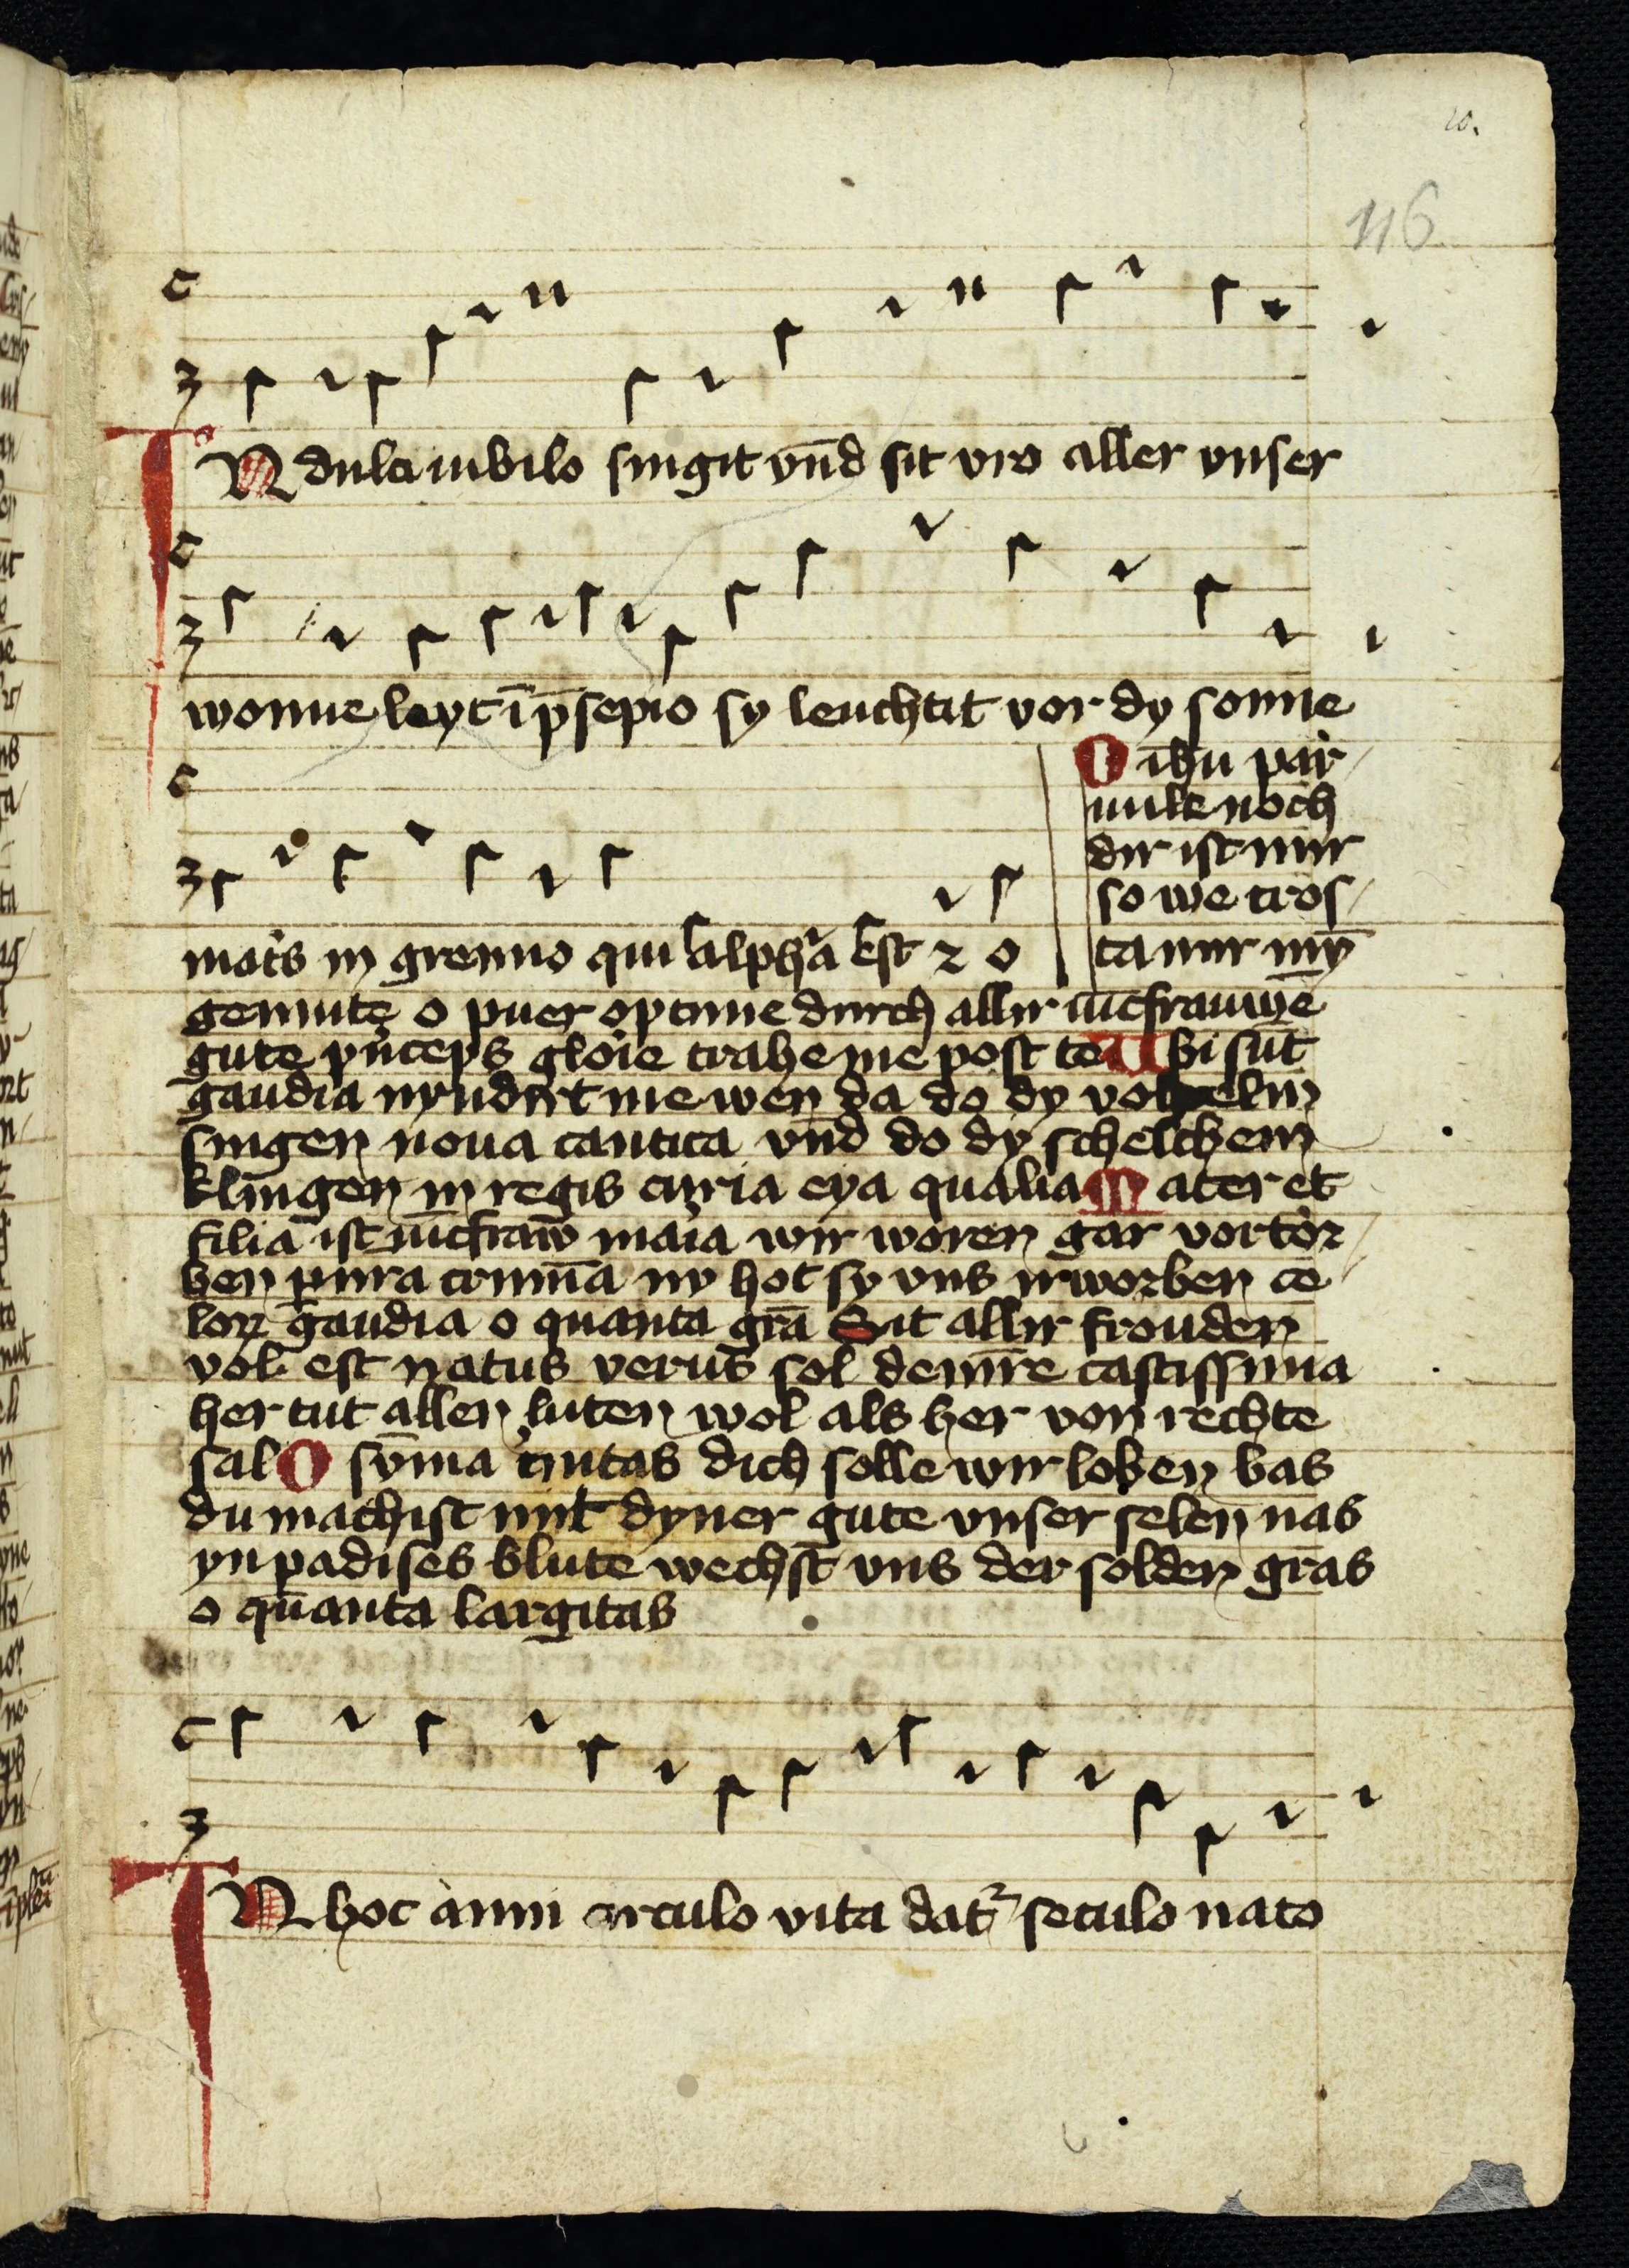 10.
116
IN dulci iubilo singit vn̄d sit vro aller vnser
wonne leyt ī p̄sepio sy leuchtit vor dy sonne
mat̓s in gremio qui alpha est z o
O ih̄u par
uule noch
dir ist mir
so we tros
ta mir mȳ
gemute o puer optime durch allir iūcfrauwē
gute pͥnceps glo̓ie trahe me post te Ubi sūt
gaudia nyndirt me wen da do dy vohelin
singen noua cantica vn̄d do dy schelchem
klingen in regis curia eya qualia Mater et
filia ist iūcfraw maͥa wir woren gar vortor
ben p nr̄a crimīa ny hot sy vns irworben ce
loꝝ gaudia o quanta grā Sit allir frouden
vol est natus verus sol de mr̄e castissima
her tut allen luten wol als her von rechte
sal O sūma tͥnitas dich solle wir loben bas
du machist mit dyner gute vnser selen nas
yn padises blute wechst vns der solden gras
o quanta largitas
IN hoc anni circulo vita datᷣ seculo nato